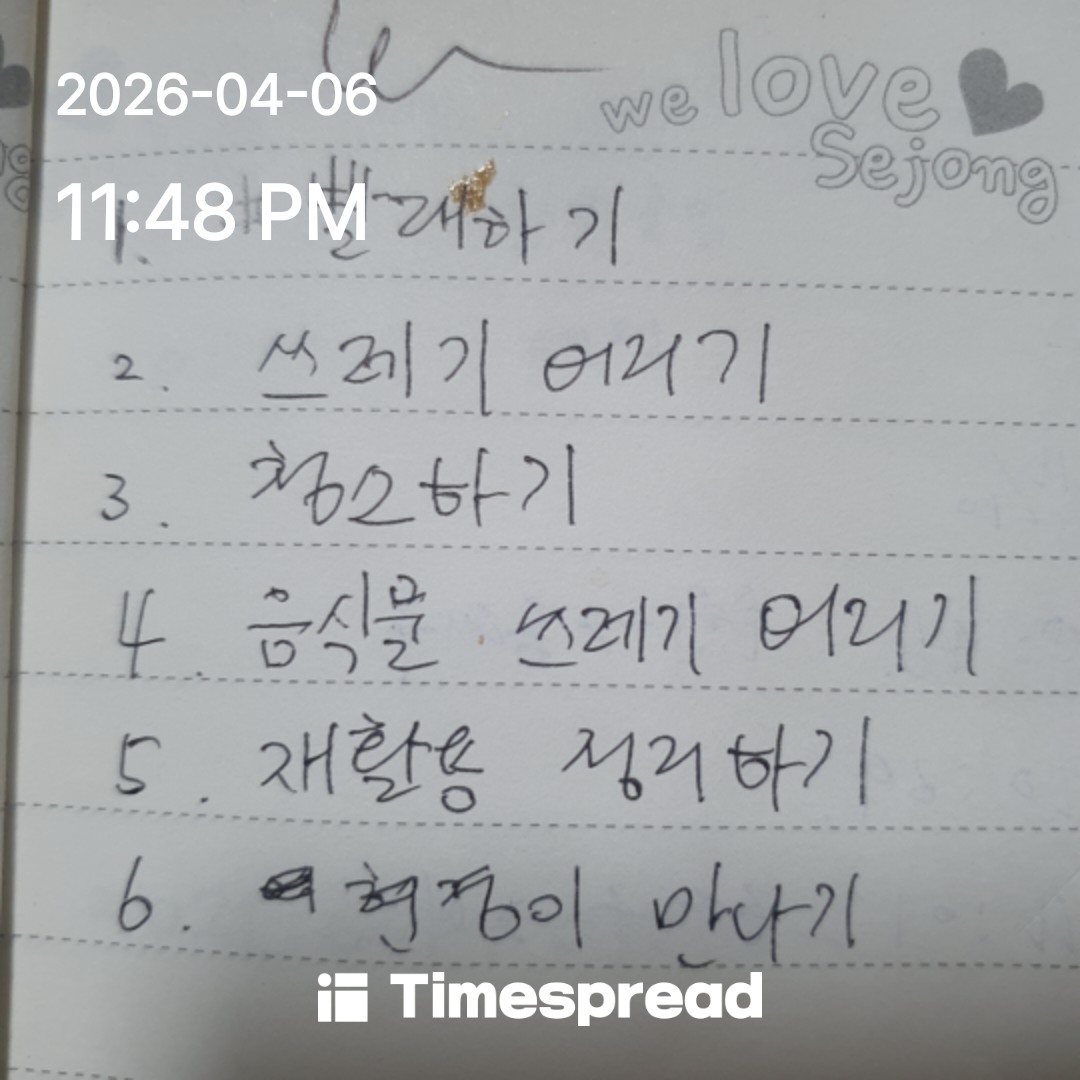 2026-04-06
we love
Sejong
11:48 PM
1. 빨래하기
2. 쓰레기 버리기
3. 청소하기
4. 음식물 쓰레기 버리기
5. 재활용 정리하기
6. 현정이 만나기
Timespread